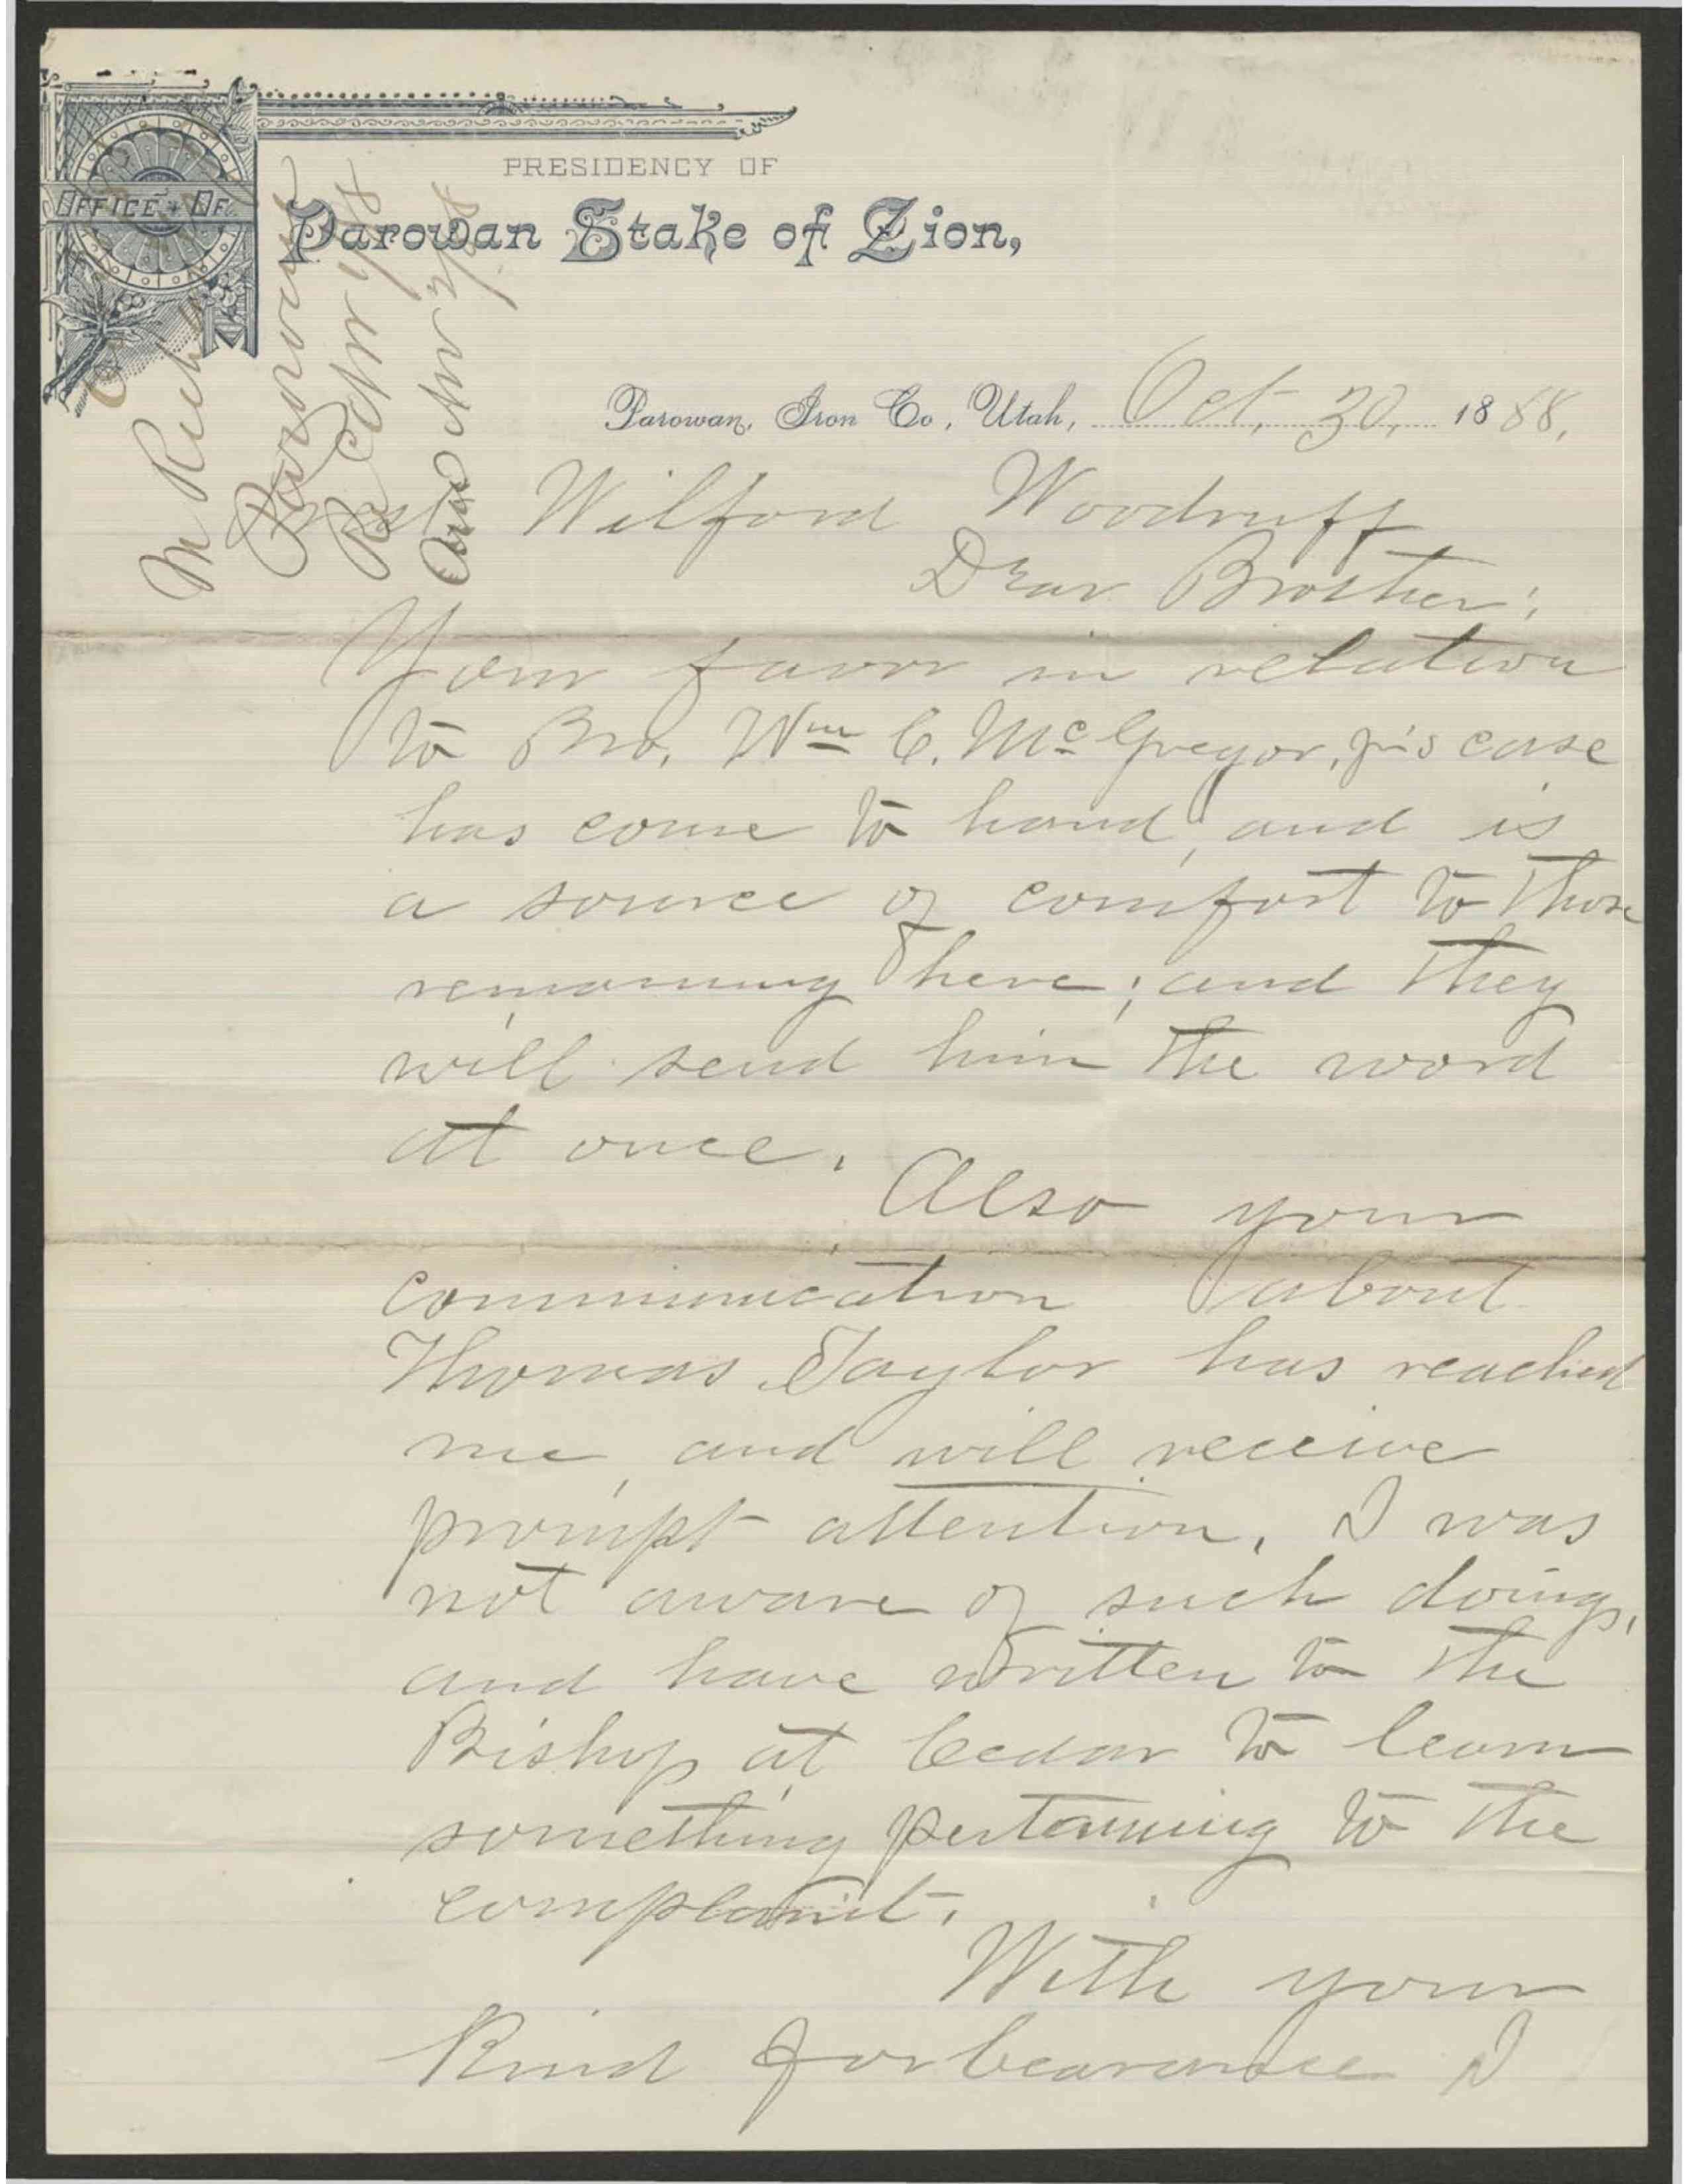 OFFICE OF
PRESIDENCY OF
Parowan Stake of Zion,
Parowan, Iron Co., Utah, Oct. 30, 1888.
M Rich
Parowan
Rec Nov 1/88
Ans Nov 2/88
Prest Wilford Woodruff
Dear Brother;
Your favor in relation
to Bro. Wm C. McGregor, his case
has come to hand, and is
a source of comfort to those
remaining here; and they
will send him the word
at once.
Also your
communication about
Thomas Taylor has reached
me, and will receive
prompt attention. I was
not aware of such doings,
and have written to the
Bishop at Cedar to learn
something pertaining to the
complaint.
With your
Kind forbearance I